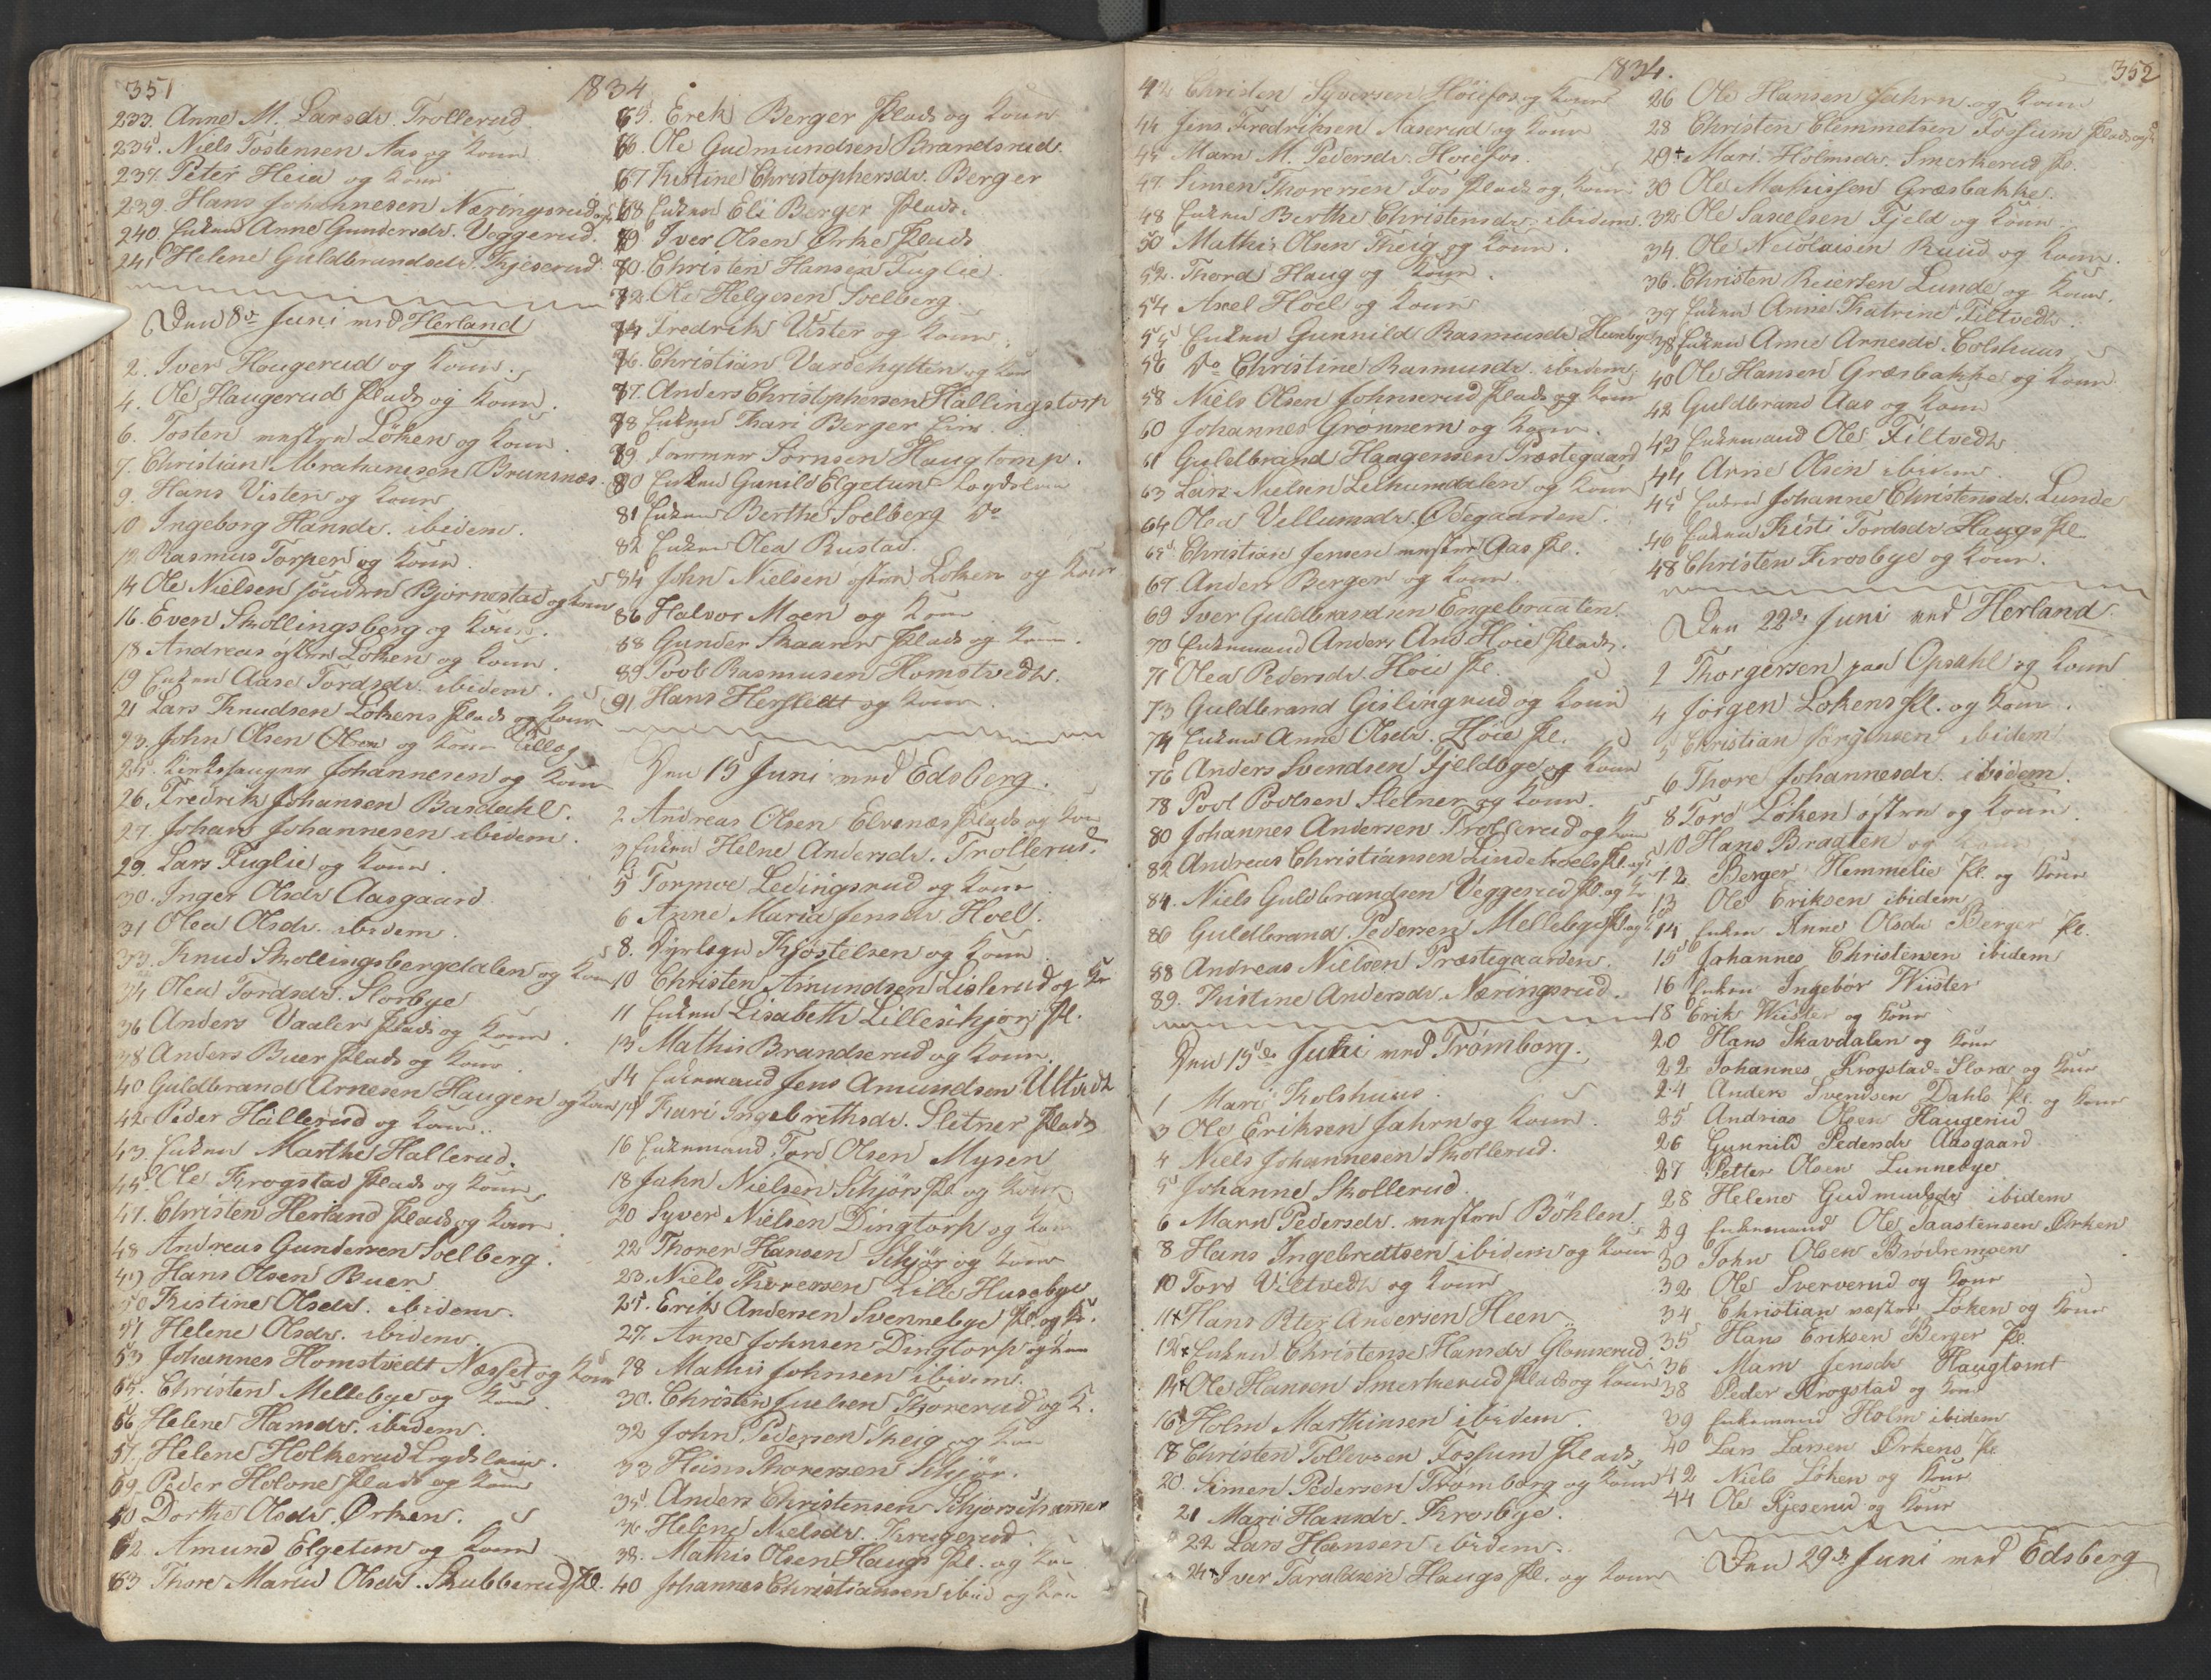 351
1834
233. Anne M. Larsdr. Trollerud
235. Niels Tostensen Aas og Kone
237. Peter Heia og Kone
239. Hans Johannesen Næringsrud og K
240. Enken Anne Gundersdr. Veggerud.
241 Helene Guldbrandsdr. Kjeserud
Den 8de Juni ved Herland
2. Iver Haugerud og Kone.
4. Ole Haugerud Plads og Kone.
6. Tosten vestre Löken og Kone
7. Christian Abrahamsen Brunsnæs.
9. Hans Visten og Kone
10 Ingeborg Hansdr. ibidem.
12. Rasmus Torper og Kone.
14 Ole Nielsen söndre Bjørnestad og Kone
16. Even Skollingsberg og Kone.
18 Andreas östre Löken og Kone.
19 Enken Aase Tordsdr. ibidem.
21 Lars Knudsen Lökens Plads og Kone
23. John Olsen og Kone
25. Kirkesanger Johannesen og Kone
26. Fredrik Johansen Basdahl.
27. Johan Johannesen ibidem.
29. Lars Fuglie og Kone.
30. Inger Olsdr Aasgaard
31 Olea Olsdr. ibidem.
33. Knud Skollingsbergdalen og Kone
34 Olea Tordsdr. Slorbye
36 Anders Vaaler Plads og Kone.
38 Anders Buer Plads og Kone.
40 Guldbrand Arnesen Haugen og Kone
42 Peder Hallerud og Kone.
43. Enken Marthe Hallerud.
45. Ole Krogstad Plads og Kone
47. Christen Herland Plads og Kone
48 Andreas Gundersen Soelberg.
49 Hans Olsen Buer
50 Kistine Olsdr. ibidem.
51 Helene Olsdr. ibidem.
53 Johannes Homstvedt Næsset og Kone
55. Christen Mellebye og Kone
56 Helene Hansdr. ibidem.
57. Helene Holkerud Logdslem.
59. Peder Helvne Plads og Kone
60 Dorthe Olsdr. Ørken.
62. Amund Elgetun og Kone
63 Thore Maria Olsdr. Skubberud Pl.
65. Erek Berger Plads og Kone
66. Ole Gudmundsen Brandsrud.
67 Kistine Christophersdr. Berger
68 Enken Eli Berger Plads.
69 Iver Olsen Ørke Plads
70. Christen Hansen Fuglie.
72. Ole Helgesen Soelberg.
74 Fredrik Vister og Kone.
76. Christian Vardehytten og Kone
77. Anders Christophersen Hallingstorp
78 Enken Kari Berger Eie
79. Sörnsen Haugtomp.
80 Enken Gunild Elgetun Logdslem
81 Enken Berthe Soelberg Do
82 Enken Olea Rustad.
84 John Nielsen östre Löken og Kone
86 Halvor Moen og Kone
88 Gunder Skaarer Plads og Kone.
89 Povl Rasmusen Homstvedt.
91 Hans Herslidt og Kone.
Den 15 Juni ved Edsberg.
2 Andreas Olsen Elvenæs Plads og Kone
3 Enken Helne Andersdr. Trollerud.
5 Tormoe Ledingsrud og Kone.
6 Anne Maria Jensdr. Hoel.
8. Kjöstelsen og Kone
10 Christen Amundsen Lislerud og K
11 Enken Lisabeth Lilleskjør Pl.
13 Mathis Brandserud og Kone.
14 Enkemand Jens Amundsen Ultvedt
15 Kari Ingebrethsdr. Sletner Plads
16 Enkemand Tord Olsen Mysen
18 Jahn Nielsen Skjørs Pl og Kone
20 Syver Nielsen Dingtorp og Kone
22 Thorer Hansen Skjør og Kone
23. Niels Thorersen Lille Husebye
25. Erik Andersen Svennebye Pl. og K.
27. Arne Johnsen Dingtorp og Kone
28 Mathis Johnsen ibidem.
30. Christen Juelsen Thorerud og K.
32 John Pedersen Theig og Kone
33 Hans Thorersen Skjør.
35. Anders Christensen Skjørshamer
36 Helene Nielsdr. Krugerud
38. Mathis Olsen Haugs Pl. og Kone
40 Johannes Christiansen ibid og Kone
1834.
352
42 Christen Syversen Høiefos og Kone
44 Jens Fredriksen Naserud og Kone
45 Maren M. Pedersdr. Høiefos.
47. Simen Thorersen Fos Plads og Kone.
48 Enken Berthe Christensdr. ibidem.
50 Mathis Olsen Theig og Kone.
52. Thord Haug og Kone.
54 Axel Höel og Kone
55. Enken Gunnild Rasmusdr Husebye
56 Do Christine Rasmusdr. ibidem
58 Niels Olsen Johnserud Plads og Kone
60 Johannes Grønnern og Kone.
61 Guldbrand Haagensen Præstegaard
63 Lars Nielsen Lekumdalen og Kone
64 Olea Vellumsdr. Ødegaarden.
65. Christian Jensen vestre Aas Pl.
67. Anders Berger og Kone.
69 Iver Guldbrandsen Engebraaten.
70 Enkemand Anders And. Hoie Plads.
71 Olea Pedersdr. Hoie Pl.
73 Guldbrand Gislingrud og Kone
74 Enken Anne Olsdr. Høie Pl.
76 Anders Svendsen Fjeldbye og Kone
78 Povl Povlsen Sletner og Kone.
80 Johannes Andersen Trollerud og K
82 Andreas Christiansen Lindehoels Pl. og K
84. Niels Guldbrandsen Veggerud Pl. og K
86 Guldbrand Pedersen Mellebye Pl. og K
88 Andreas Nielsen Præstegaarden.
89. Kistine Andersdr. Næringsrud.
Den 15de Juni ved Trömborg.
1 Mari Kolshuus.
3 Ole Eriksen Jahrn og Kone.
4 Niels Johannesen Skollerud.
5 Johanne Skollerud.
6 Maren Pedersdr. vestre Böhlen.
8 Hans Ingebretsen ibidem og Kone
10 Tord Viltvedt og Kone
11+ Hans Peter Andersen Heen
12+ Enken Christense Hansdr Glomserud
14+ Ole Hansen Smerkerud Plads og Kone
16+ Holm Marthinsen ibidem.
18 Christen Tollevsen Fossum Plads
20. Simen Pedersen Trömborg og Kone
21 Mari Hansdr. Krosbye.
22 Lars Hansen ibidem.
24+ Iver Taraldsen Haugs Pl. og Kone
26 Ole Hansen Jahrn og Kone
28 Christen Clemmetsen Fossum Plads og K
29+ Mari Holmsdr. Smerkerud Pl.
30 Ole Mathissen Græsbakke.
32 Ole Saxelsen Fjeld og Kone
34. Ole Nicolaisen Ruud og Kone.
36. Christen Reiersen Lunde og Kone.
37 Enken Anne Katrine Tiltvedt.
38 Enken Anne Arnesdr. Colshuus
40 Ole Hansen Græsbakke og Kone
42 Guldbrand Aas og Kone
43 Enkemand Ole Filtvedt
44 Arne Olsen ibidem
45 Enken Johanne Christensdr. Lunde
46 Enken Kisti Tordsdr. Haugs Pl.
48 Christen Krosbye og Kone.
Den 22de Juni ved Herland.
2 Thorgersen paa Opsahl og Kone
4 Jørgen Lökens Pl. og Kone.
5 Christian Jørgensen ibidem
6 Thore Johannesdr. ibidem.
8 Tord Löken östre og Kone.
10 Hans Braaten og Kone
12 Berger Hemmelie Pl. og Kone
13 Ole Eriksen ibidem
14 Enken Anne Olsdr Berger Pl.
15 Johannes Christensen ibidem
16 Enken Ingebor Wiister
18 Erik Wiister og Kone
20 Hans Skavdalen og Kone
22 Johannes Krogstad-Slora og Kone
24 Anders Svendsen Dahls Pl. og Kone
25 Andrias Olsen Haugerud
26 Gunnild Pedersdr Aasgaard
27 Petter Olsen Lunnebye
28 Helene Gudmundsdr ibidem
29 Enkemand Ole Saastensen Ørken
30 John Olsen Brödremoen
32 Ole Sververud og Kone
34 Christian vestre Löken og Kone
35 Hans Eriksen Berger Pl.
36 Maren Jensdr Haugtomt
38 Peder Krogstad og Kone
39 Enkemand Holm ibidem
40 Lars Larsen Ørkens Pl
42 Niels Löken og Kone
44 Ole Kjeserud og Kone
Den 29de Juni ved Edsberg